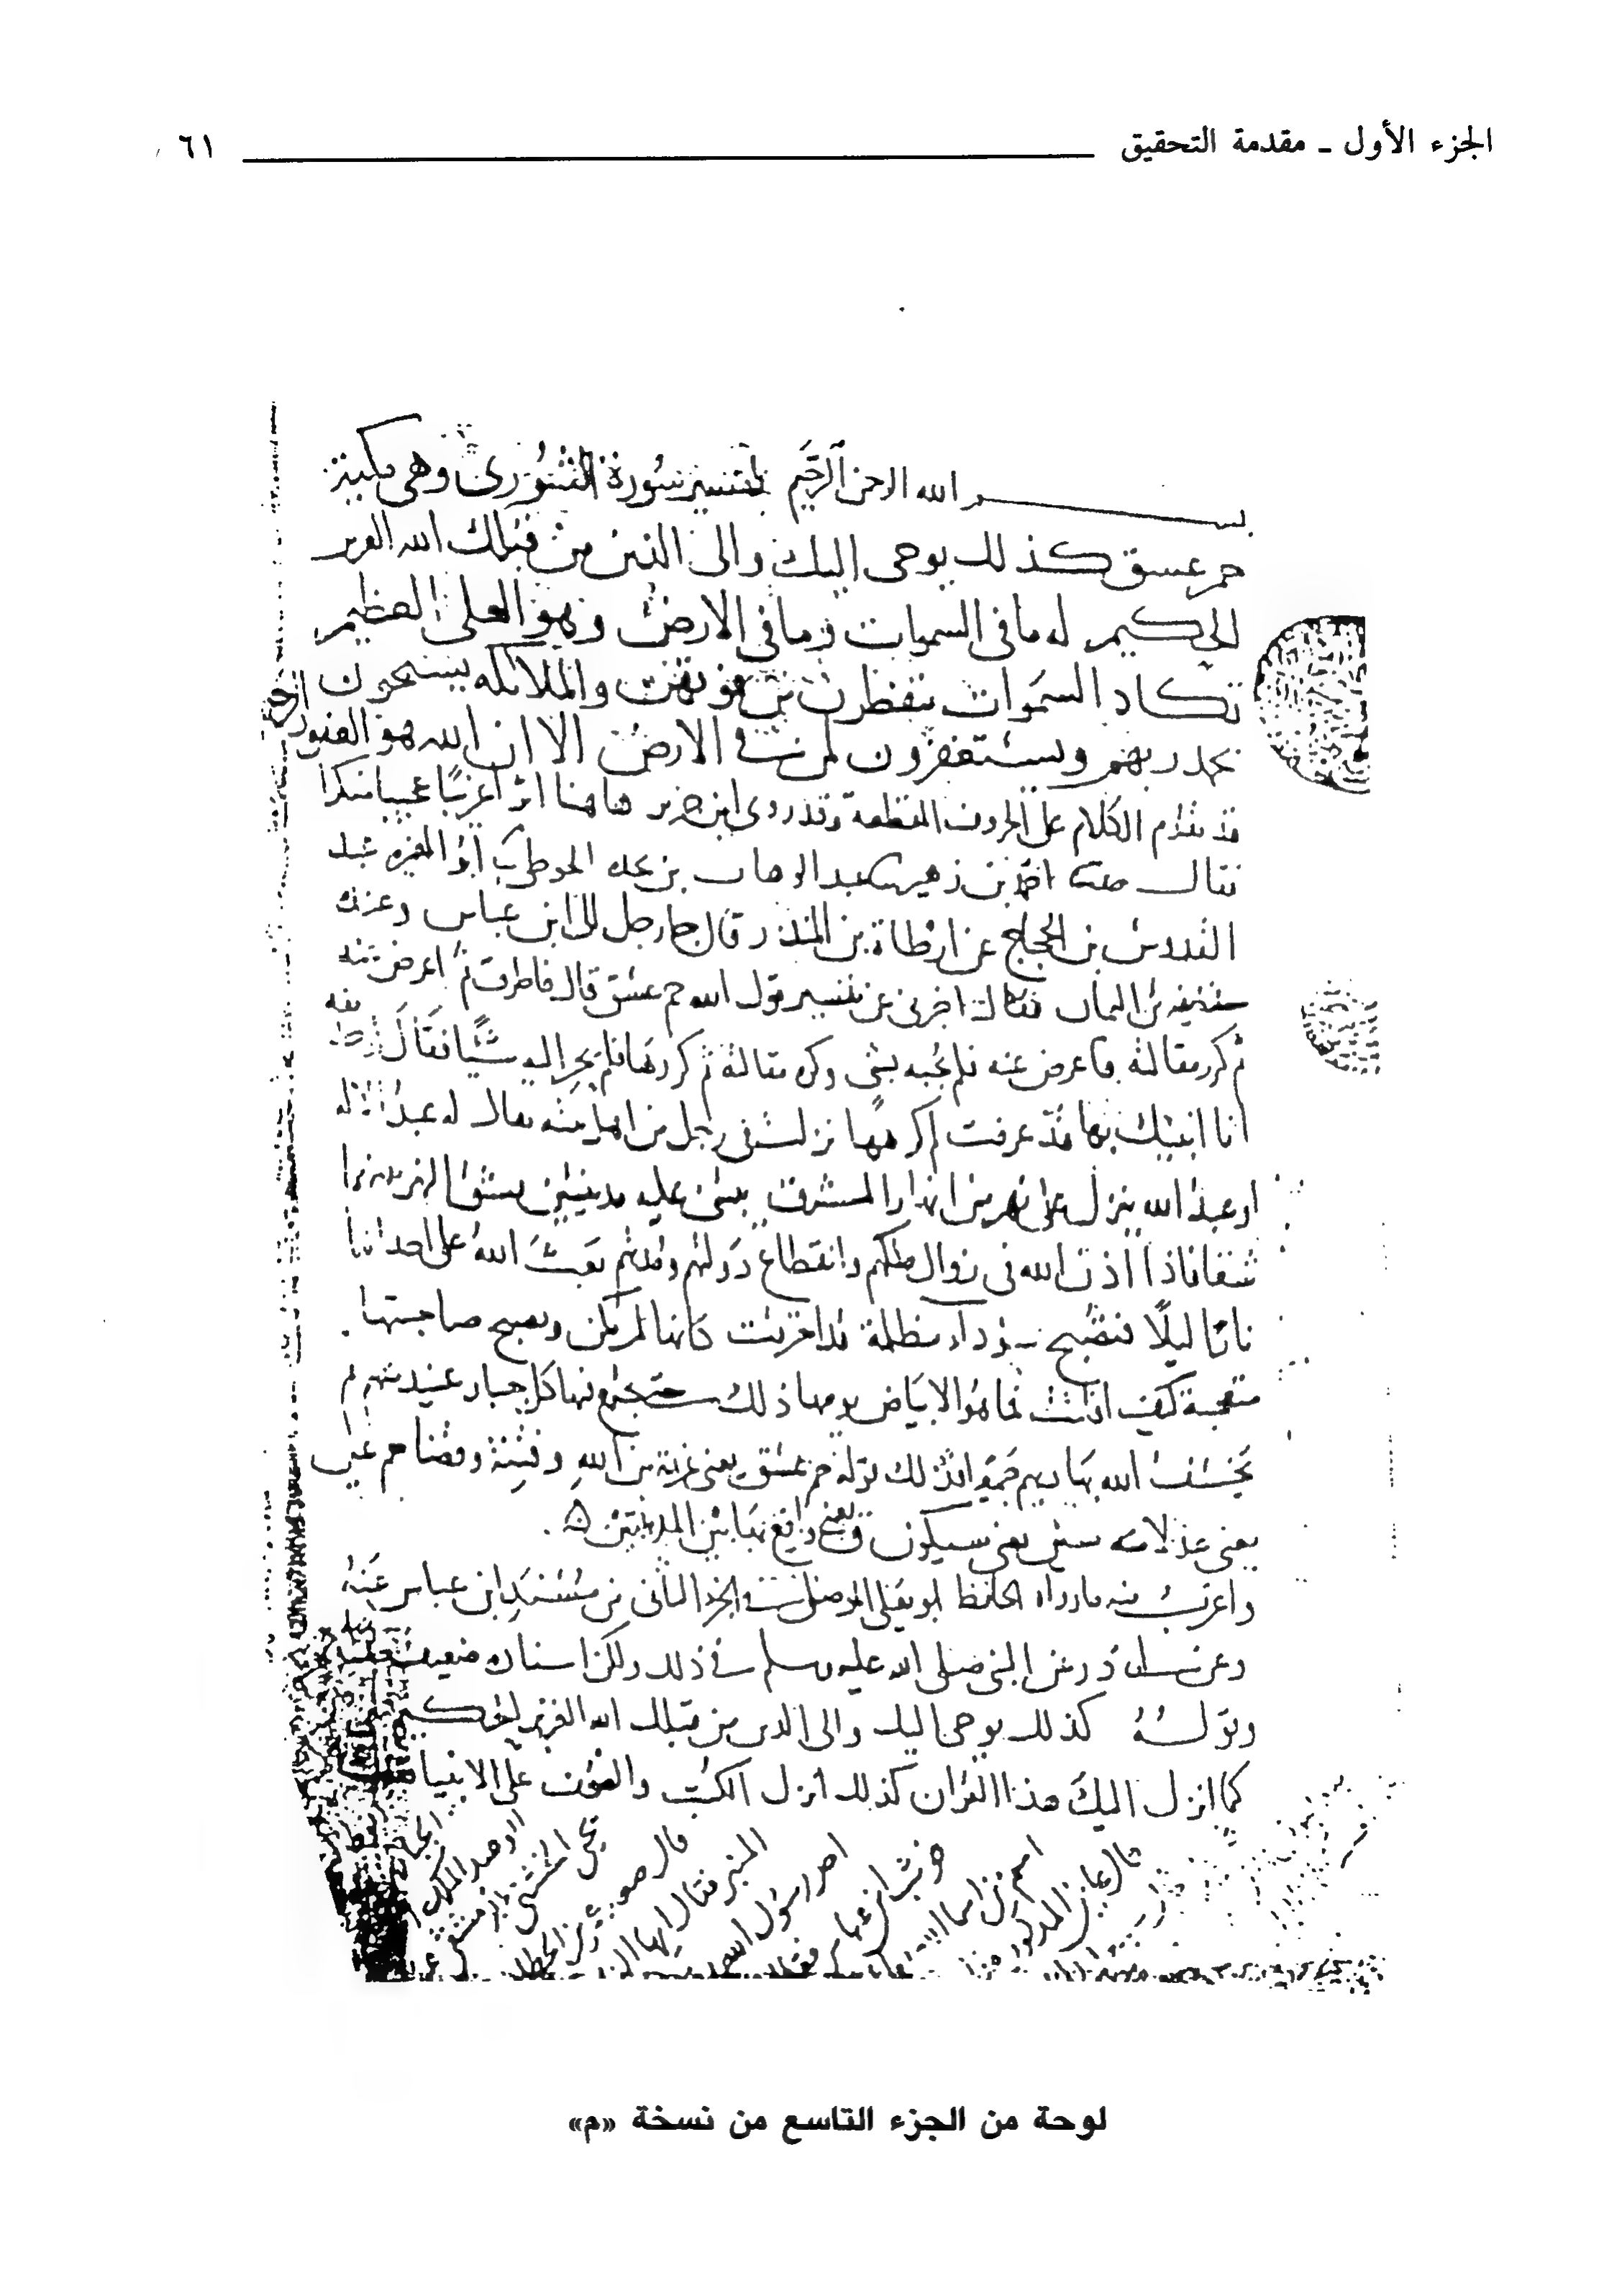 الجزء الأول ـ مقدمة التحقيق ٦١
بسم الله الرحمن الرحيم تفسير سورة الشورى وهى مكية
حم عسق كذلك يوحى اليك والى الذين من قبلك الله العزيز
الحكيم له ما فى السموات وما فى الارض وهو العلى العظيم
تكاد السموات يتفطرن من فوقهن والملائكة يسبحون
بحمد ربهم ويستغفرون لمن فى الارض الا ان الله هو الغفور الرحيم
قد تقدم الكلام على الحروف المقطعة وقد روى ابن جرير هاهنا اثرا غريبا عجيبا منكرا
فقال حدثنا احمد بن زهير عبد الوهاب بن نجدة الحوطى ابو المغيرة عبد
القدوس بن الحجاج عن ارطاة بن المنذر قال جا رجل الى ابن عباس وعنده
حذيفة بن اليمان فقال اخبرنى عن تفسير قول الله حم عسق قال فاطرق ثم اعرض عنه
ثم كرر مقالته فاعرض عنه فلم يجبه بشى وكره مقالته ثم كررها فلم يحر اليه شيا فقال حذيفة
انا انبيك بها قد عرفت لم كرهها نزلت فى رجل من اهل بيته يقال له عبد الاله
او عبد الله ينزل على نهر من انهار المشرق يبنى عليه مدينتين يشق النهر بينهما
شقا فاذا اذن الله فى زوال ملكهم وانقطاع دولتهم ومدتهم بعث الله على احداهما
نارا ليلا فتصبح سوداء مظلمة قد احترقت كانها لم تكن وتصبح صاحبتها
متعجبة كيف افلتت فما هو الا بياض يومها ذلك حتى يجتمع فيها كل جبار عنيد منهم ثم
يخسف الله بها وبهم جميعا فذلك قوله حم عسق يعنى عزيمة من الله وفتنة وقضا حم عين
يعنى عدلا منه سين يعنى سيكون ق يعنى واقع بهاتين المدينتين
واغرب منه ما رواه الحافظ ابو يعلى الموصلى فى الجز الثانى من مسند ابن عباس عنه
وعن ابى ذر عن النبى صلى الله عليه وسلم فى ذلك ولكن اسناده ضعيف
وقوله كذلك يوحى اليك والى الذين من قبلك الله العزيز الحكيم
كما انزل اليك هذا القران كذلك انزل الكتب والصحف على الانبيا
لوحة من الجزء التاسع من نسخة «م»